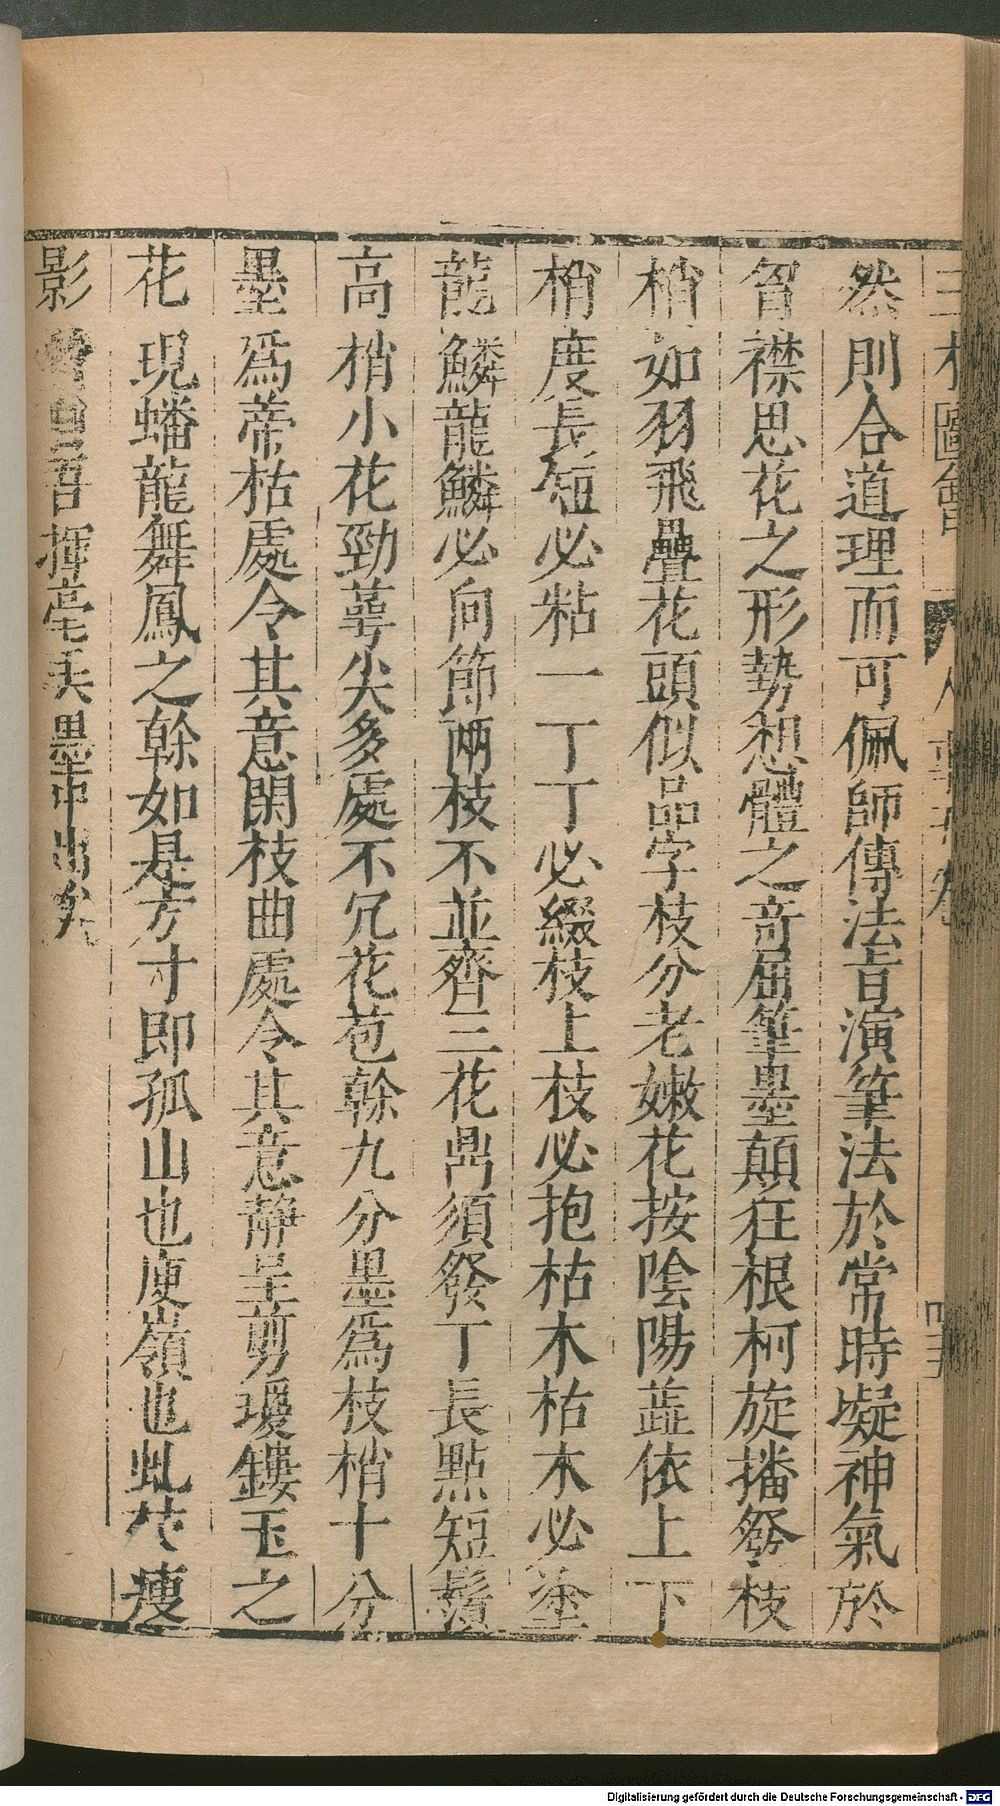 三才圖會 人事 卷 四五
然則合道理而可佩師傳法旨演筆法於常時凝神氣於
胷襟思花之形勢想體之奇屈筆墨顛狂根柯旋播發枝
梢如羽飛疊花頭似品字枝分老嫩花按陰陽蘂依上下
梢度長短必粘一丁丁必綴枝上枝必抱枯木枯木必塗
龍鱗龍鱗必向節兩枝不並齊三花鼎須發丁長點短鬚
高梢小花勁萼尖多處不冗花苞榦九分墨爲枝梢十分
墨爲蒂枯處令其意閑枝曲處令其意静呈剪瓊鏤玉之
花現蟠龍舞鳳之榦如是方寸即孤山也庾嶺也虬枝瘦
影皆自吾揮毫天墨中出矣
Digitalisierung gefördert durch die Deutsche Forschungsgemeinschaft - DFG